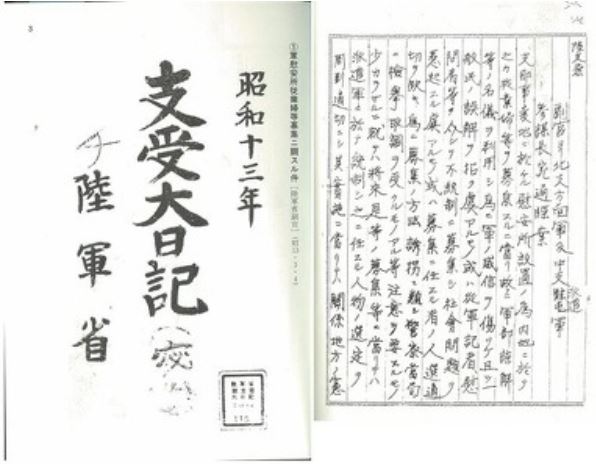 3
①軍慰安所従業婦等募集ニ關スル件〔陸軍省副官〕(昭13・3・4)
昭和十三年
支受大日記(密)
陸軍省
陸支密
副官ヨリ北支方面軍及中支派遣軍
参謀長宛通牒案
支那事変地ニ於ケル慰安所設置ノ為内地ニ於テ
之カ従業婦等ヲ募集スルニ当リ故ラニ軍部諒解
等ノ名儀ヲ利用シ為ニ軍ノ威信ヲ傷ツケ且ツ一
般民ノ誤解ヲ招ク虞アルモノ或ハ従軍記者、慰
問者等ヲ介シテ不統制ニ募集シ社会問題ヲ
惹起スル虞アルモノ或ハ募集ニ任スル者ノ人選適
切ヲ欠キ為ニ募集ノ方法誘拐ニ類シ警察当局
ニ検挙取調ヲ受クルモノアル等注意ヲ要スルモノ
少カラサルニ就テハ将来是等ノ募集等ニ当リテハ
派遣軍ニ於テ統制シ之ニ任スル人物ノ選定ヲ
周到適切ニシ其実施ニ当リテハ関係地方ノ憲